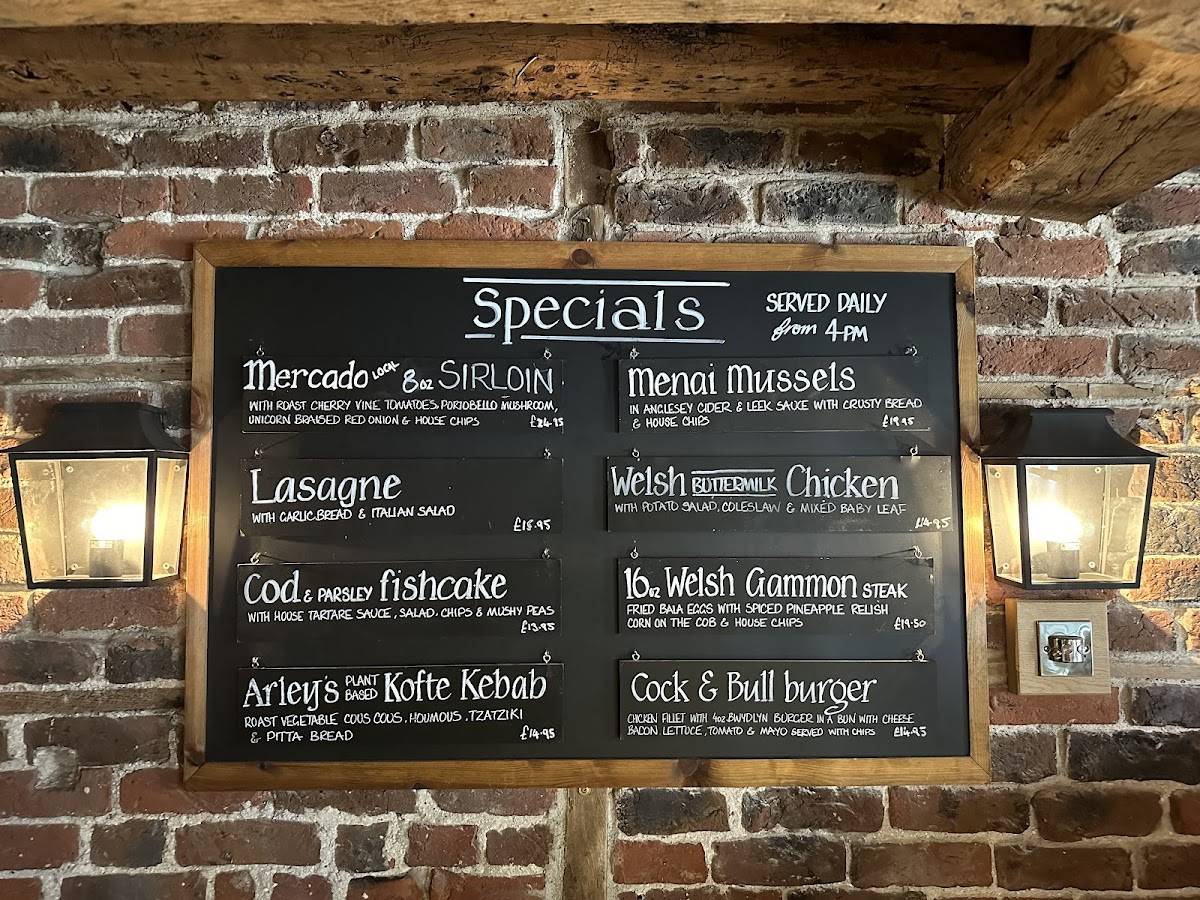 Specials
SERVED DAILY
from 4PM
Mercado LOCAL 8oz SIRLOIN
WITH ROAST CHERRY VINE TOMATOES, PORTOBELLO MUSHROOM,
UNICORN BRAISED RED ONION & HOUSE CHIPS £24.95
Lasagne
WITH GARLIC BREAD & ITALIAN SALAD
£15.95
Cod & PARSLEY fishcake
WITH HOUSE TARTARE SAUCE, SALAD. CHIPS & MUSHY PEAS
£13.95
Arley's PLANT BASED Kofte Kebab
ROAST VEGETABLE COUS COUS, HOUMOUS, TZATZIKI
& PITTA BREAD £14.95
Menai Mussels
IN ANGLESEY CIDER & LEEK SAUCE WITH CRUSTY BREAD
& HOUSE CHIPS £19.95
Welsh BUTTERMILK Chicken
WITH POTATO SALAD, COLESLAW & MIXED BABY LEAF
£14.95
16oz Welsh Gammon STEAK
FRIED BALA EGGS WITH SPICED PINEAPPLE RELISH
CORN ON THE COB & HOUSE CHIPS £19.50
Cock & Bull burger
CHICKEN FILLET WITH 4oz BWYDLYN BURGER IN A BUN WITH CHEESE
BACON LETTUCE, TOMATO & MAYO SERVED WITH CHIPS £14.95